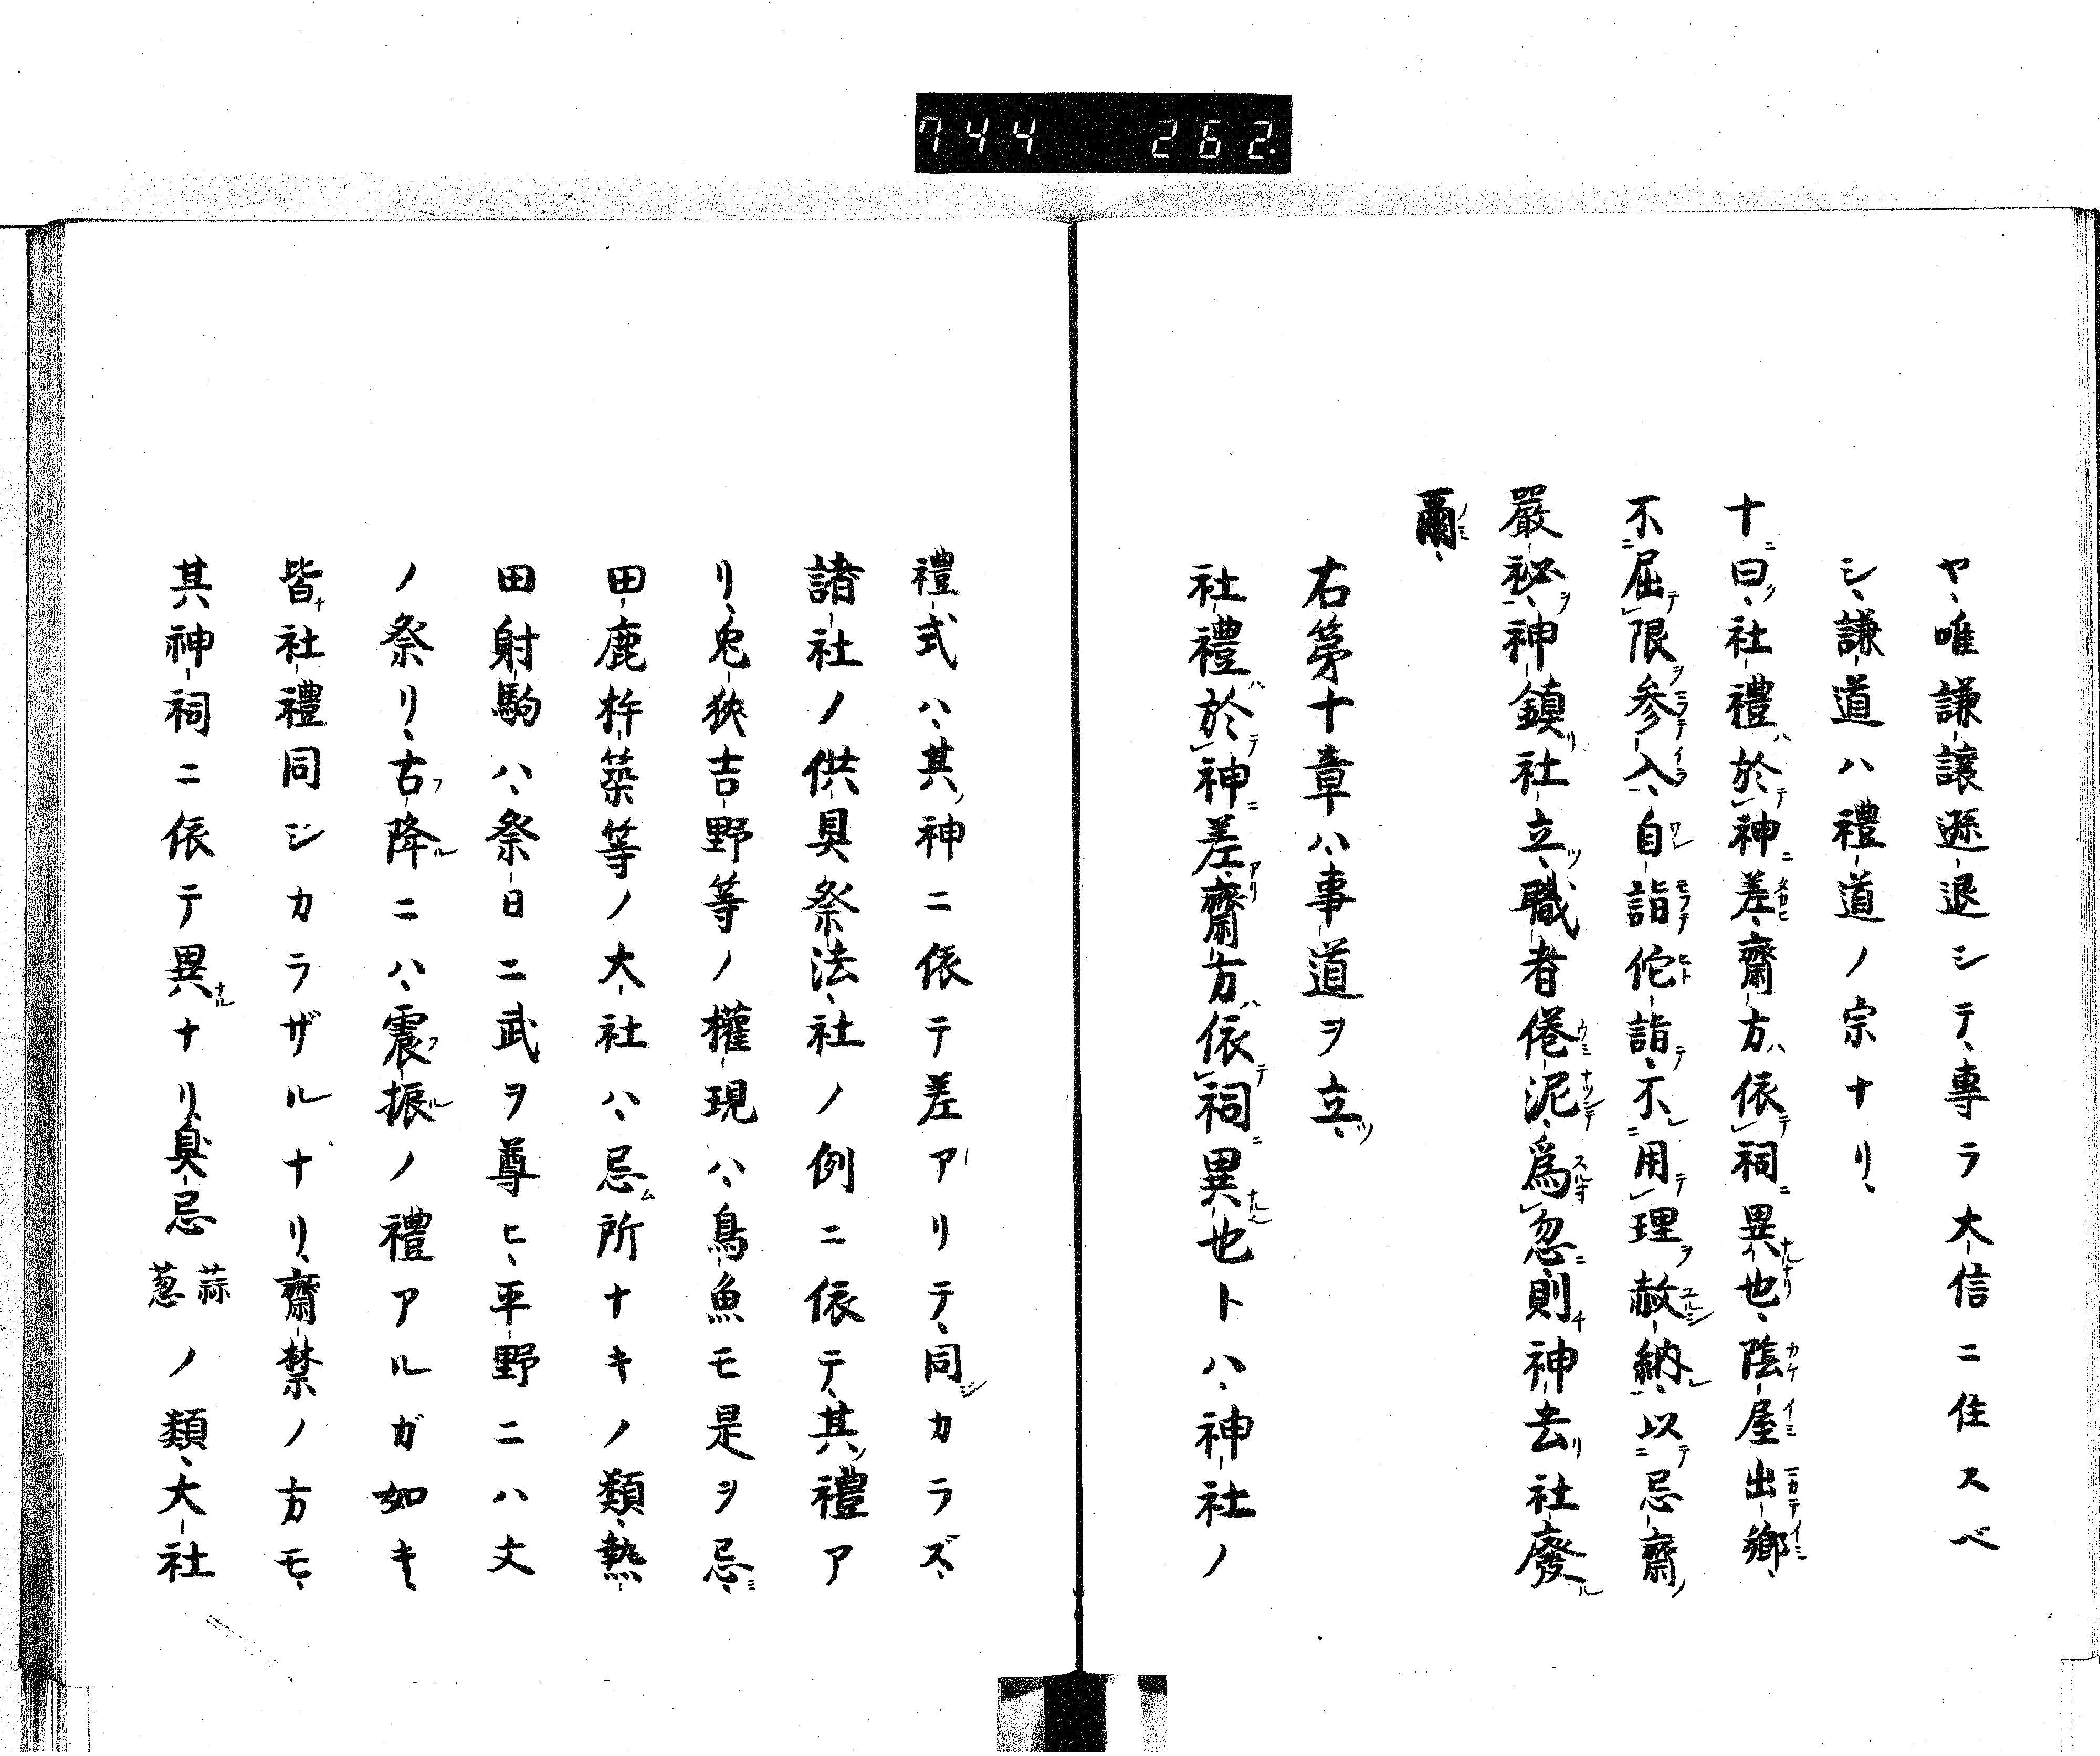 744 262.
ヤ、唯謙讓遜退シテ、專ラ大信ニ住スベ
シ、謙道ハ禮道ノ宗ナリ、
十曰、社禮於神差、齋方依祠異也、陰屋出鄉、
不屈限參入、自詣佗詣、不用理赦納、以忌齋
嚴祕、神鎮社立、職者倦泥、爲忽則神去社廢
爾、
右第十章ハ、事道ヲ立、
社禮於神差、齋方依祠異也トハ、神社ノ
禮式ハ、其神ニ依テ差アリテ、同シカラズ、
諸社ノ供具祭法、社ノ例ニ依テ、其禮ア
リ、兎狹吉野等ノ權現ハ、鳥魚モ是ヲ忌、
田鹿杵築等ノ大社ハ、忌所ナキノ類、熱
田射駒ハ、祭日ニ武ヲ尊ヒ、平野ニハ丈
ノ祭リ、古降ニハ、震振ノ禮アルガ如キ、
皆社禮同ジカラザルナリ、齋禁ノ方モ、
其神祠ニ依テ異ナリ、臭忌 蒜葱 ノ類、大社